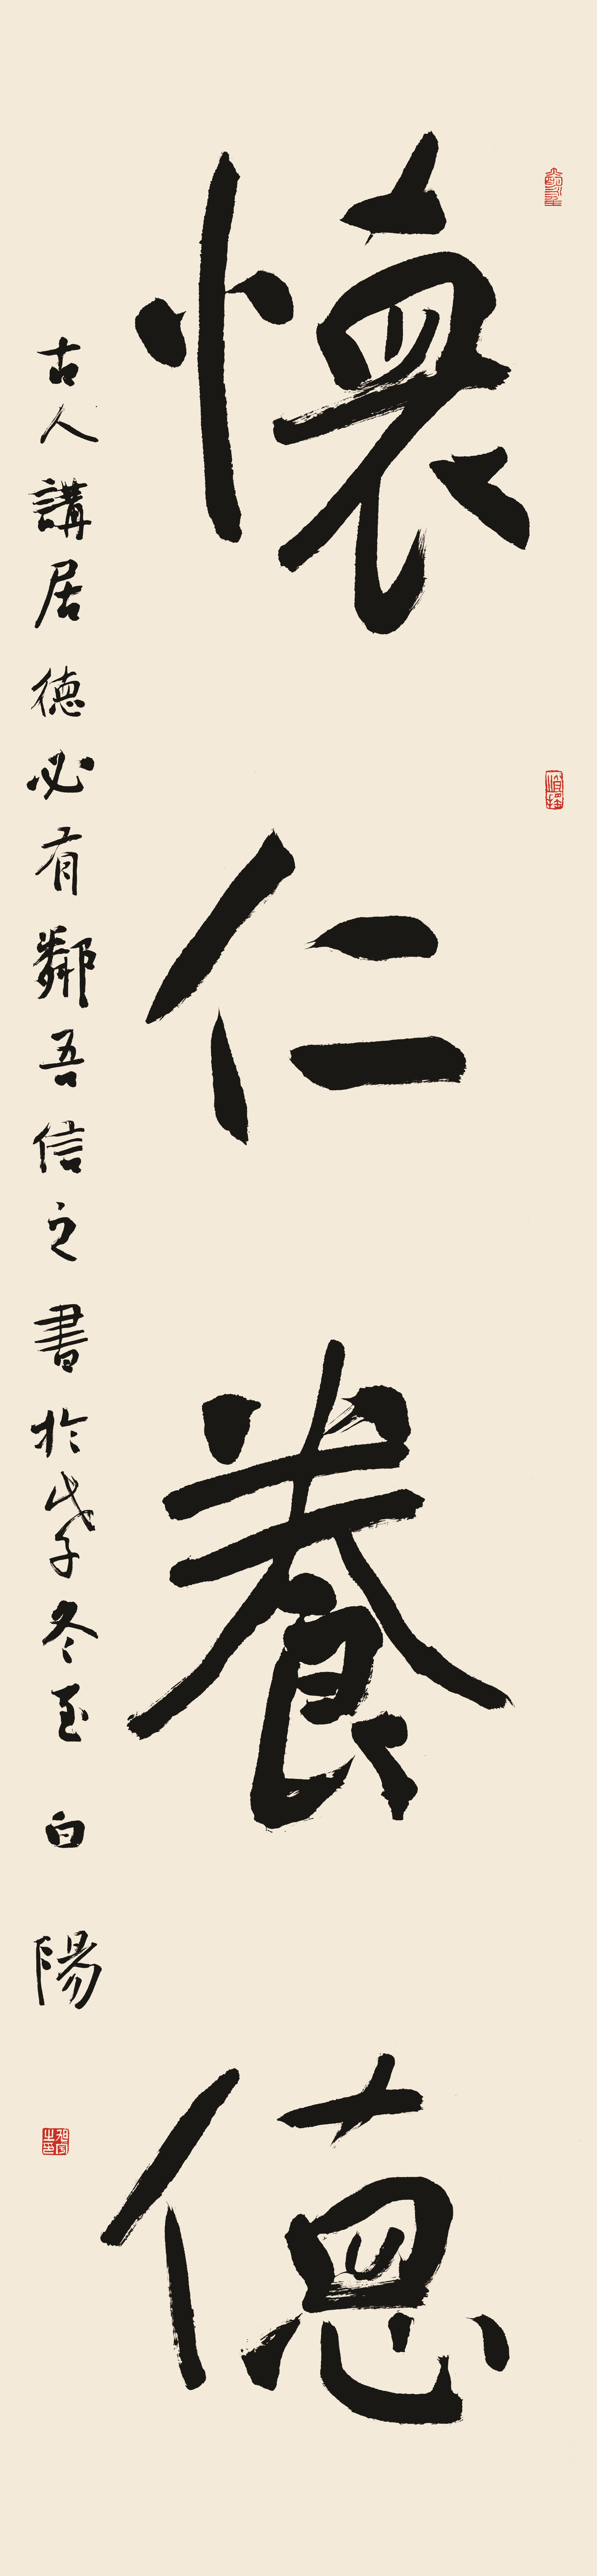 懷仁養德
古人講居德必有鄰吾信之書於戊子冬至 白陽